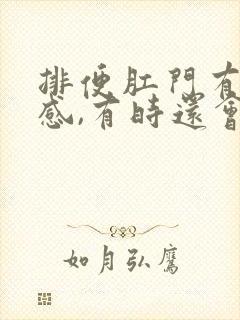 排便肛門有
感,有時還會
如月弘鷹